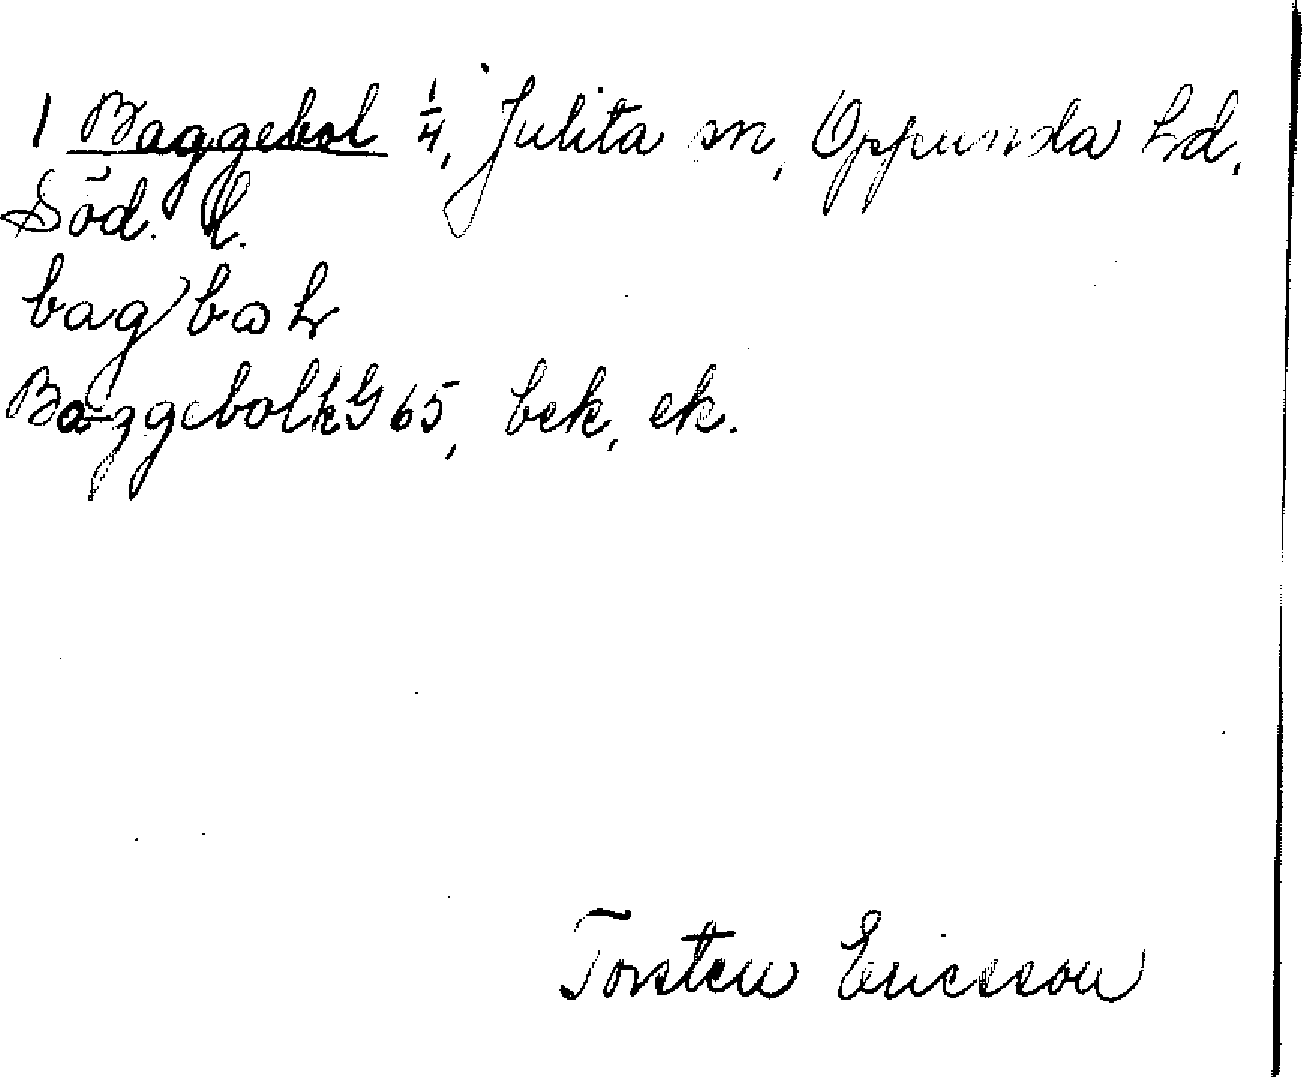 1 Baggebol 1/4, Julita sn, Oppunda hd.
Söd. l.
Baggebol kG 65, bek, ek.
Torsten Ericsson